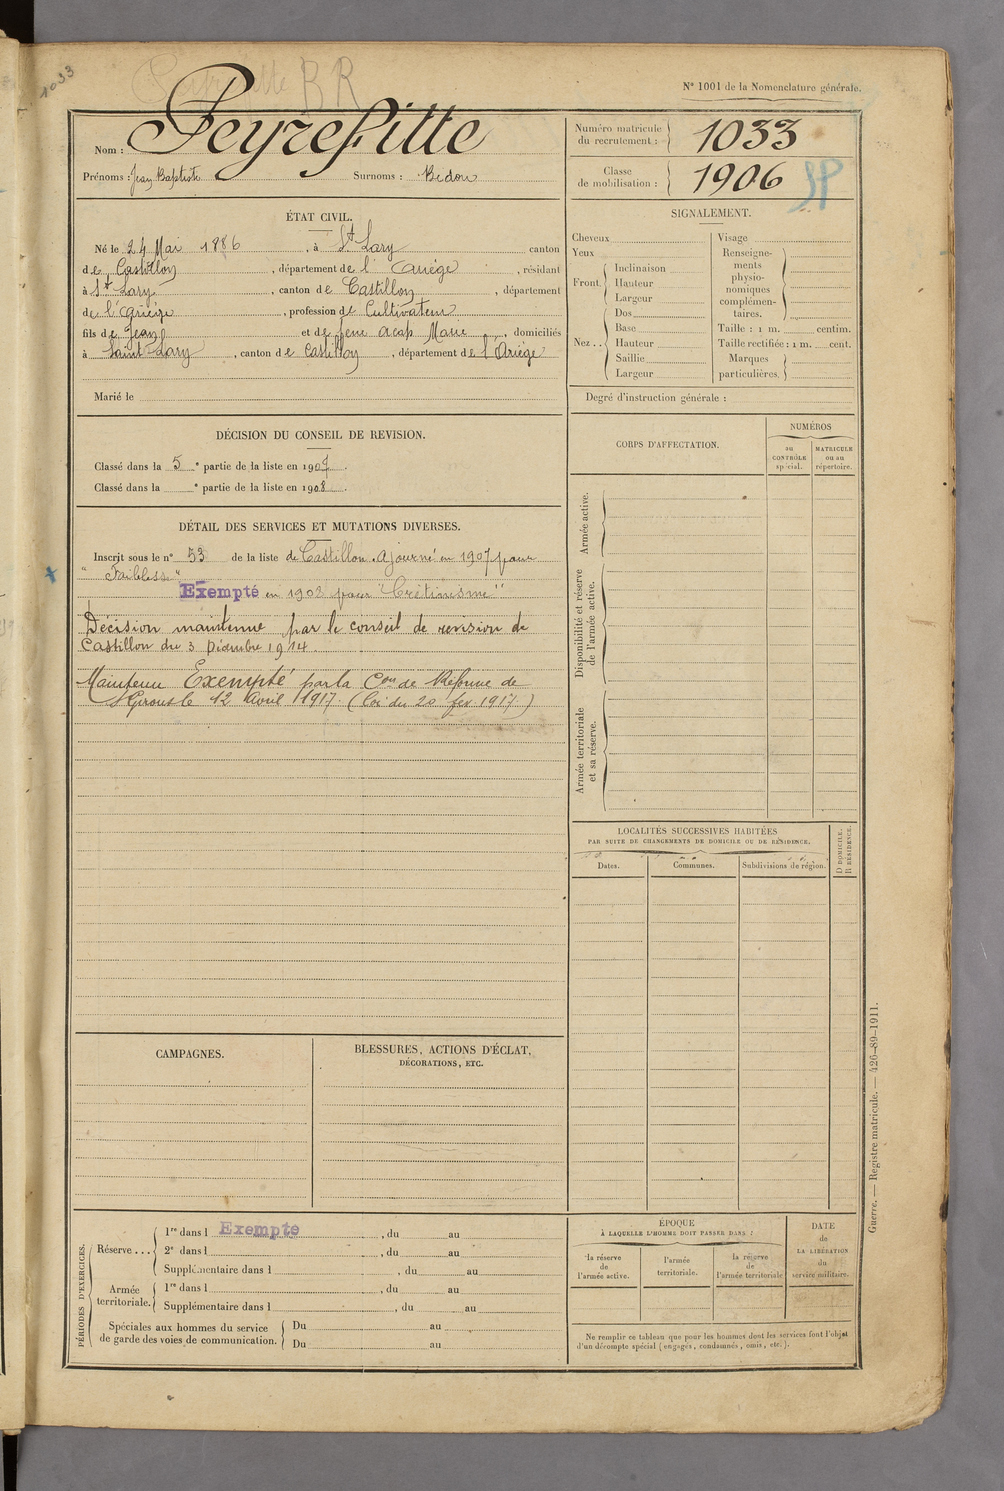 1033
Peyrefitte BR
N° 1001 de la Nomenclature générale.
Nom : Peyrefitte
Prénoms : Jean Baptiste Surnoms : Bedou
Numéro matricule du recrutement : 1033
Classe de mobilisation : 1906 SP
ÉTAT CIVIL.
Né le 24 Mai 1886, à St Lary canton
de Castillon, département de l'Ariège, résidant
à St Lary, canton de Castillon, département
de l'Ariège, profession de Cultivateur
fils de Jean et de feue Acap Marie, domiciliés
à Saint Lary, canton de Castillon, département de l'Ariège
Marié le
SIGNALEMENT.
Cheveux
Yeux
Front. Inclinaison
Hauteur
Largeur
Nez .. Dos
Base
Hauteur
Saillie
Largeur
Visage
Renseigne-
ments
physio-
nomiques
complémen-
taires.
Taille : 1 m. centim.
Taille rectifiée : 1 m. cent.
Marques
particulières.
Degré d'instruction générale :
DÉCISION DU CONSEIL DE REVISION.
Classé dans la 5e partie de la liste en 1907.
Classé dans la e partie de la liste en 1908.
DÉTAIL DES SERVICES ET MUTATIONS DIVERSES.
Inscrit sous le n° 53 de la liste de Castillon. Ajourné en 1907 pour
"Faiblesse"
Exempté en 1908 pour "Crétinisme"
Décision maintenue par le conseil de revision de
Castillon du 3 Décembre 1914.
Maintenu Exempté par la Con de Réforme de
St Girons le 12 Avril 1917. (Loi du 20 fév 1917.)
CORPS D'AFFECTATION.
NUMÉROS
au CONTRÔLE spécial.
MATRICULE ou au répertoire.
Armée active.
Disponibilité et réserve
de l'armée active.
Armée territoriale
et sa réserve.
LOCALITÉS SUCCESSIVES HABITÉES
PAR SUITE DE CHANGEMENTS DE DOMICILE OU DE RÉSIDENCE.
Dates. Communes. Subdivisions de région.
D DOMICILE.
R RÉSIDENCE.
CAMPAGNES.
BLESSURES, ACTIONS D'ÉCLAT,
DÉCORATIONS, ETC.
PÉRIODES D'EXERCICES.
Réserve ... 1re dans l Exempté, du au
2e dans l, du au
Supplémentaire dans l, du au
Armée territoriale. 1re dans l, du au
Supplémentaire dans l, du au
Spéciales aux hommes du service
de garde des voies de communication.
Du au
Du au
ÉPOQUE
À LAQUELLE L'HOMME DOIT PASSER DANS :
la réserve de l'armée active.
l'armée territoriale.
la réserve de l'armée territoriale
DATE
de
LA LIBÉRATION
du
service militaire.
Ne remplir ce tableau que pour les hommes dont les services font l'objet
d'un décompte spécial (engagés, condamnés, omis, etc.).
Guerre. — Registre matricule. — 426-89-1911.